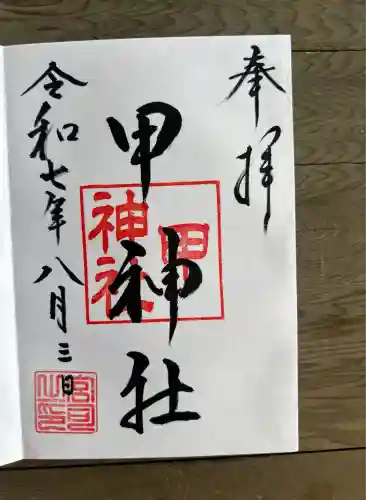 奉拝
甲神社
甲神社
令和七年八月三日